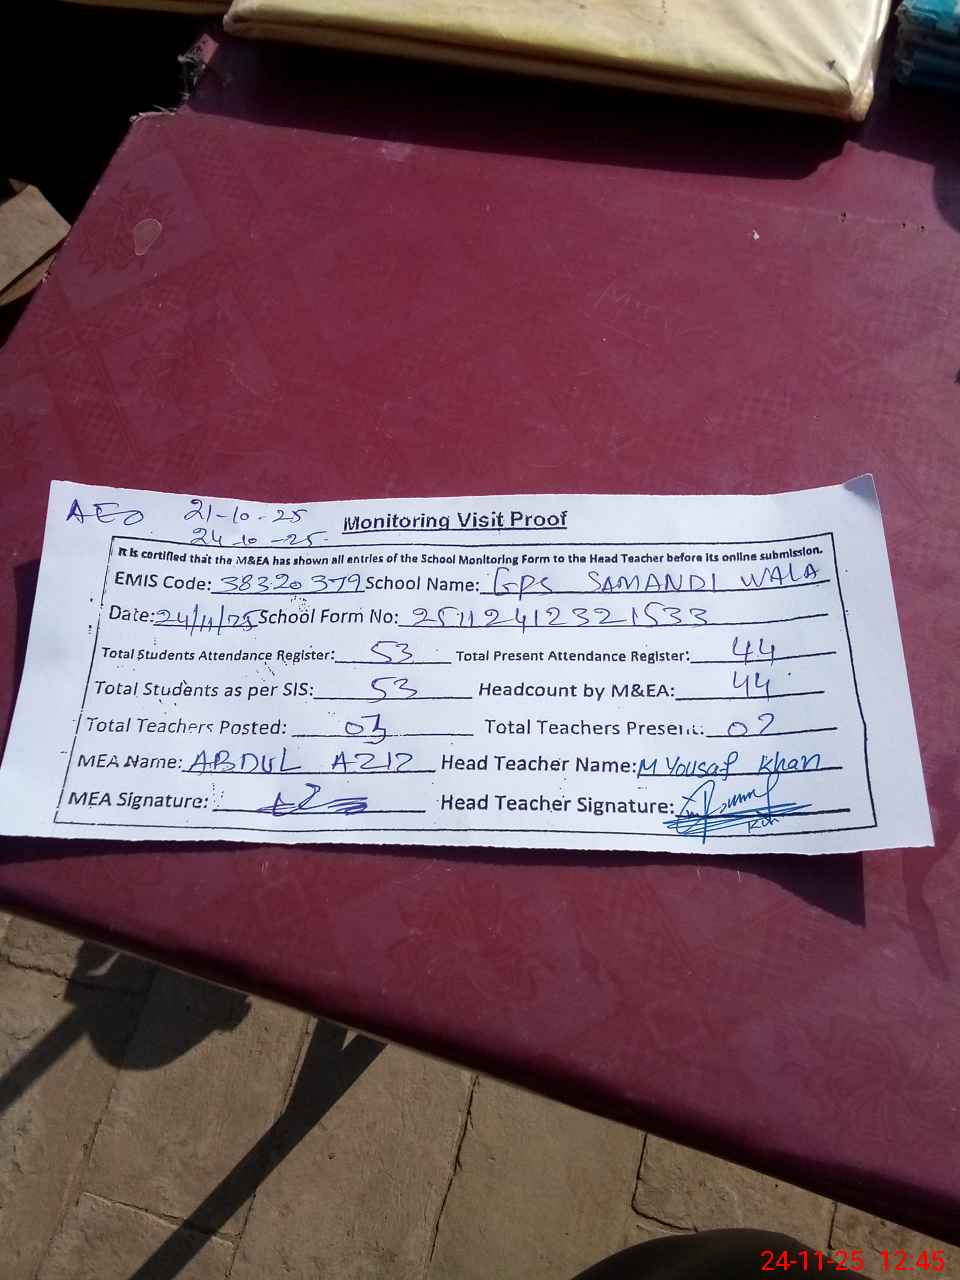 AEO 21-10-25
24-10-25-
Monitoring Visit Proof
It is certified that the M&EA has shown all entries of the School Monitoring Form to the Head Teacher before its online submission.
EMIS Code: 38320379 School Name: GPS SAMANDI WALA
Date: 24/11/25 School Form No: 25112412321533
Total Students Attendance Register: 53 Total Present Attendance Register: 44
Total Students as per SIS: 53 Headcount by M&EA: 44
Total Teachers Posted: 03 Total Teachers Present: 02
MEA Name: ABDUL AZIZ Head Teacher Name: M Yousaf Khan
MEA Signature: Head Teacher Signature:
24-11-25 12:45